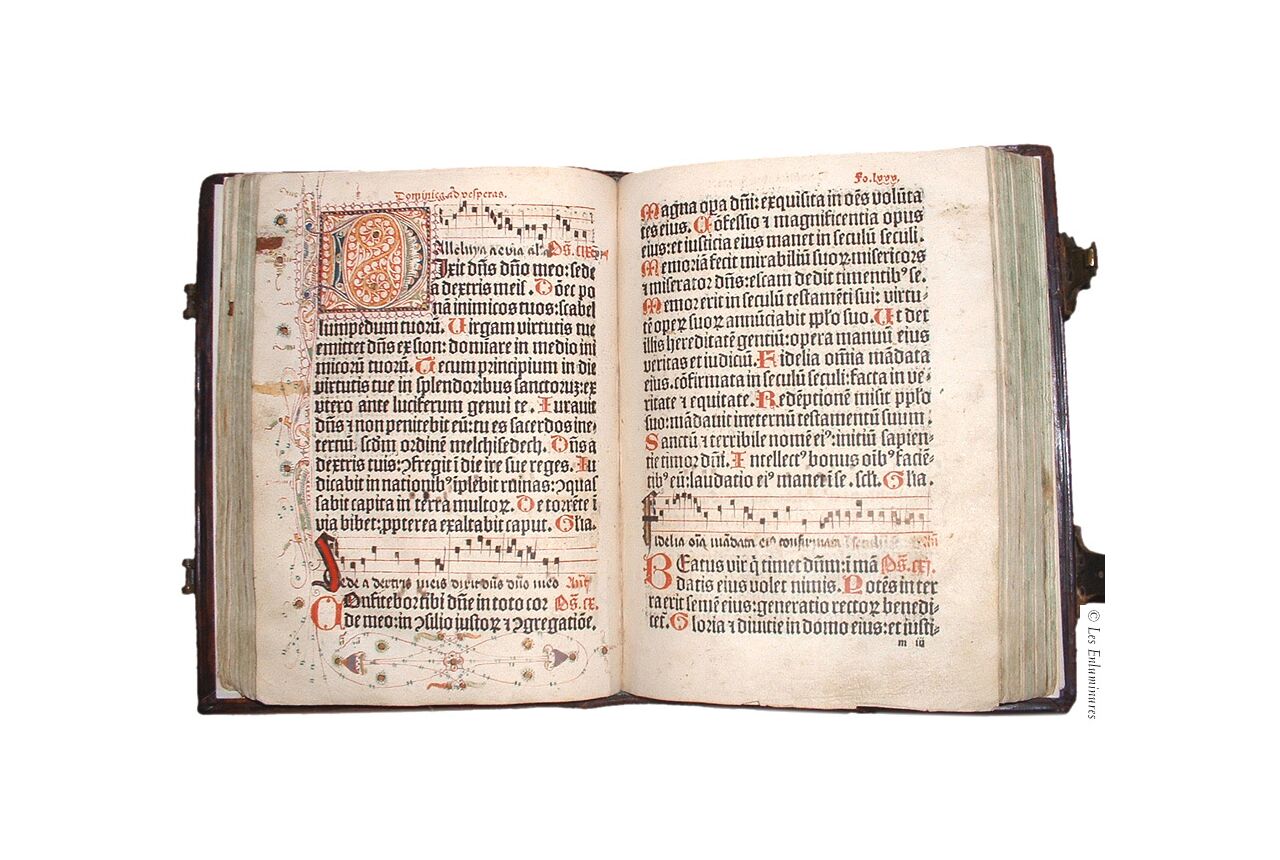 Dominica ad vesperas.
Alleluya aevia al. Ps. cix
Ixit dn̄s dn̄o meo: sede
a dextris meis. Dōec po
nā inimicos tuos: scabel
lum pedum tuorū. Virgam virtutis tue
emittet dn̄s ex sion: domīare in medio ini
micorū tuorū. Tecum principium in die
virtutis tue in splendoribus sanctoruꝫ: ex
vtero ante luciferum genui te. Iurauit
dn̄s ⁊ non penitebit eū: tu es sacerdos ine-
ternū: scd̄m ordinē melchisedech. Dn̄s a
dextris tuis: ꝯfregit ī die ire sue reges. Iu
dicabit in nationibꝰ īplebit ruinas: ꝯquas
sabit capita in terra multoꝝ. De torrēte ī
via bibet: ꝓpterea exaltabit caput. Gl̄ia.
Sede a dextris meis dixit dn̄s dn̄o meo Añ
COnfitebor tibi dn̄e in toto cor Ps. cx.
de meo: in ꝯsilio iustoꝝ ⁊ ꝯgregatiōe.
Fo. lxxx.
Magna oꝑa dn̄i: exq̇sita in oēs volūta
tes eius. Cōfessio ⁊ magnificentia opus
eius: et iusticia eius manet in seculū seculi.
Memoriā fecit mirabiliū suoꝝ misericors
⁊ miserator dn̄s: escam dedit timentibꝰ se.
Memor erit in seculū testamēti sui: virtu-
tē operꝝ suoꝝ annūciabit pp̄lo suo. Vt det
illis hereditatē gentiū: opera manuū eius
veritas et iudiciū. Fidelia om̄ia mādata
eius. cōfirmata in seculū seculi: facta in ve-
ritate ⁊ equitate. Redēptionē misit pp̄lo
suo: mādauit in eternū testamentū suum.
Sanctū ⁊ terribile nomē eiꝰ: initiū sapien-
tie timor dn̄i. Intellectꝰ bonus oībꝰ faciē-
tibꝰ eū: laudatio eiꝰ manet ī se. scl̄i. Gl̄ia.
Fidelia om̄a mādata eiꝰ confirmata
BEatus vir q̇ timet dn̄um: ī mā Ps. cxj.
datis eius volet nimis. Potēs in ter
ra erit semē eius: generatio rectoꝝ benedi-
cet. Gloria ⁊ diuitie in domo eius: et iusti-
m iij
© Les Enluminures